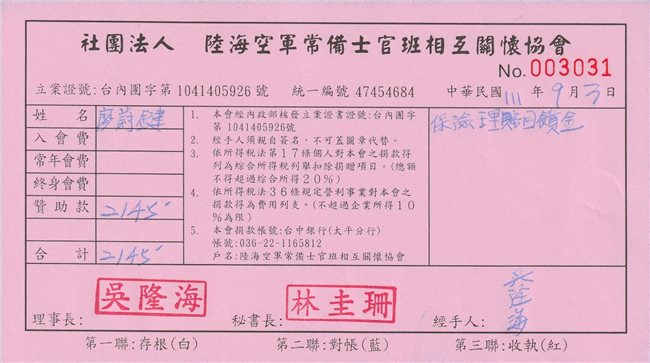 社團法人 陸海空軍常備士官班相互關懷協會
No. 003031
立案證號:台內團字第 1041405926 號 統一編號 47454684 中華民國 111 年 9 月 3 日
姓名 廖蔚
入會費
常年會費
終身會費
贊助款 2145
合計 2145
1. 本會經內政部核發立案證書證號:台內團字
第 1041405926號
2. 經手人須親自簽名,不可蓋圖章代替。
3. 依所得稅法第17條個人對本會之捐款得
列為綜合所得稅列舉扣除捐贈項目。(總額
不得超過綜合所得20%)
4. 依所得稅法36條規定營利事業對本會之
捐款得為費用列支。(不超過企業所得10
%為限)
5. 本會捐款帳號:台中銀行(太平分行)
帳號:036-22-1165812
戶名:陸海空軍常備士官班相互關懷協會
保險理賠回饋金
理事長: 吳隆海
秘書長: 林圭珊
經手人: 吳隆海
第一聯:存根(白) 第二聯:對帳(藍) 第三聯:收執(紅)